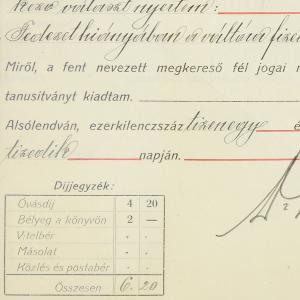 választ nyertem:
Fedezet hiányában a váltóra fize
Miről, a fent nevezett megkereső fél jogai
tanusítványt kiadtam.
Alsólendván, ezerkilenczszáz tizenegy é
tizedik napján.
Díjjegyzék:
Óvásdíj 4 20
Bélyeg a könyvön 2 —
Vitelbér . .
Másolat . .
Közlés és postabér . .
Összesen 6. 20